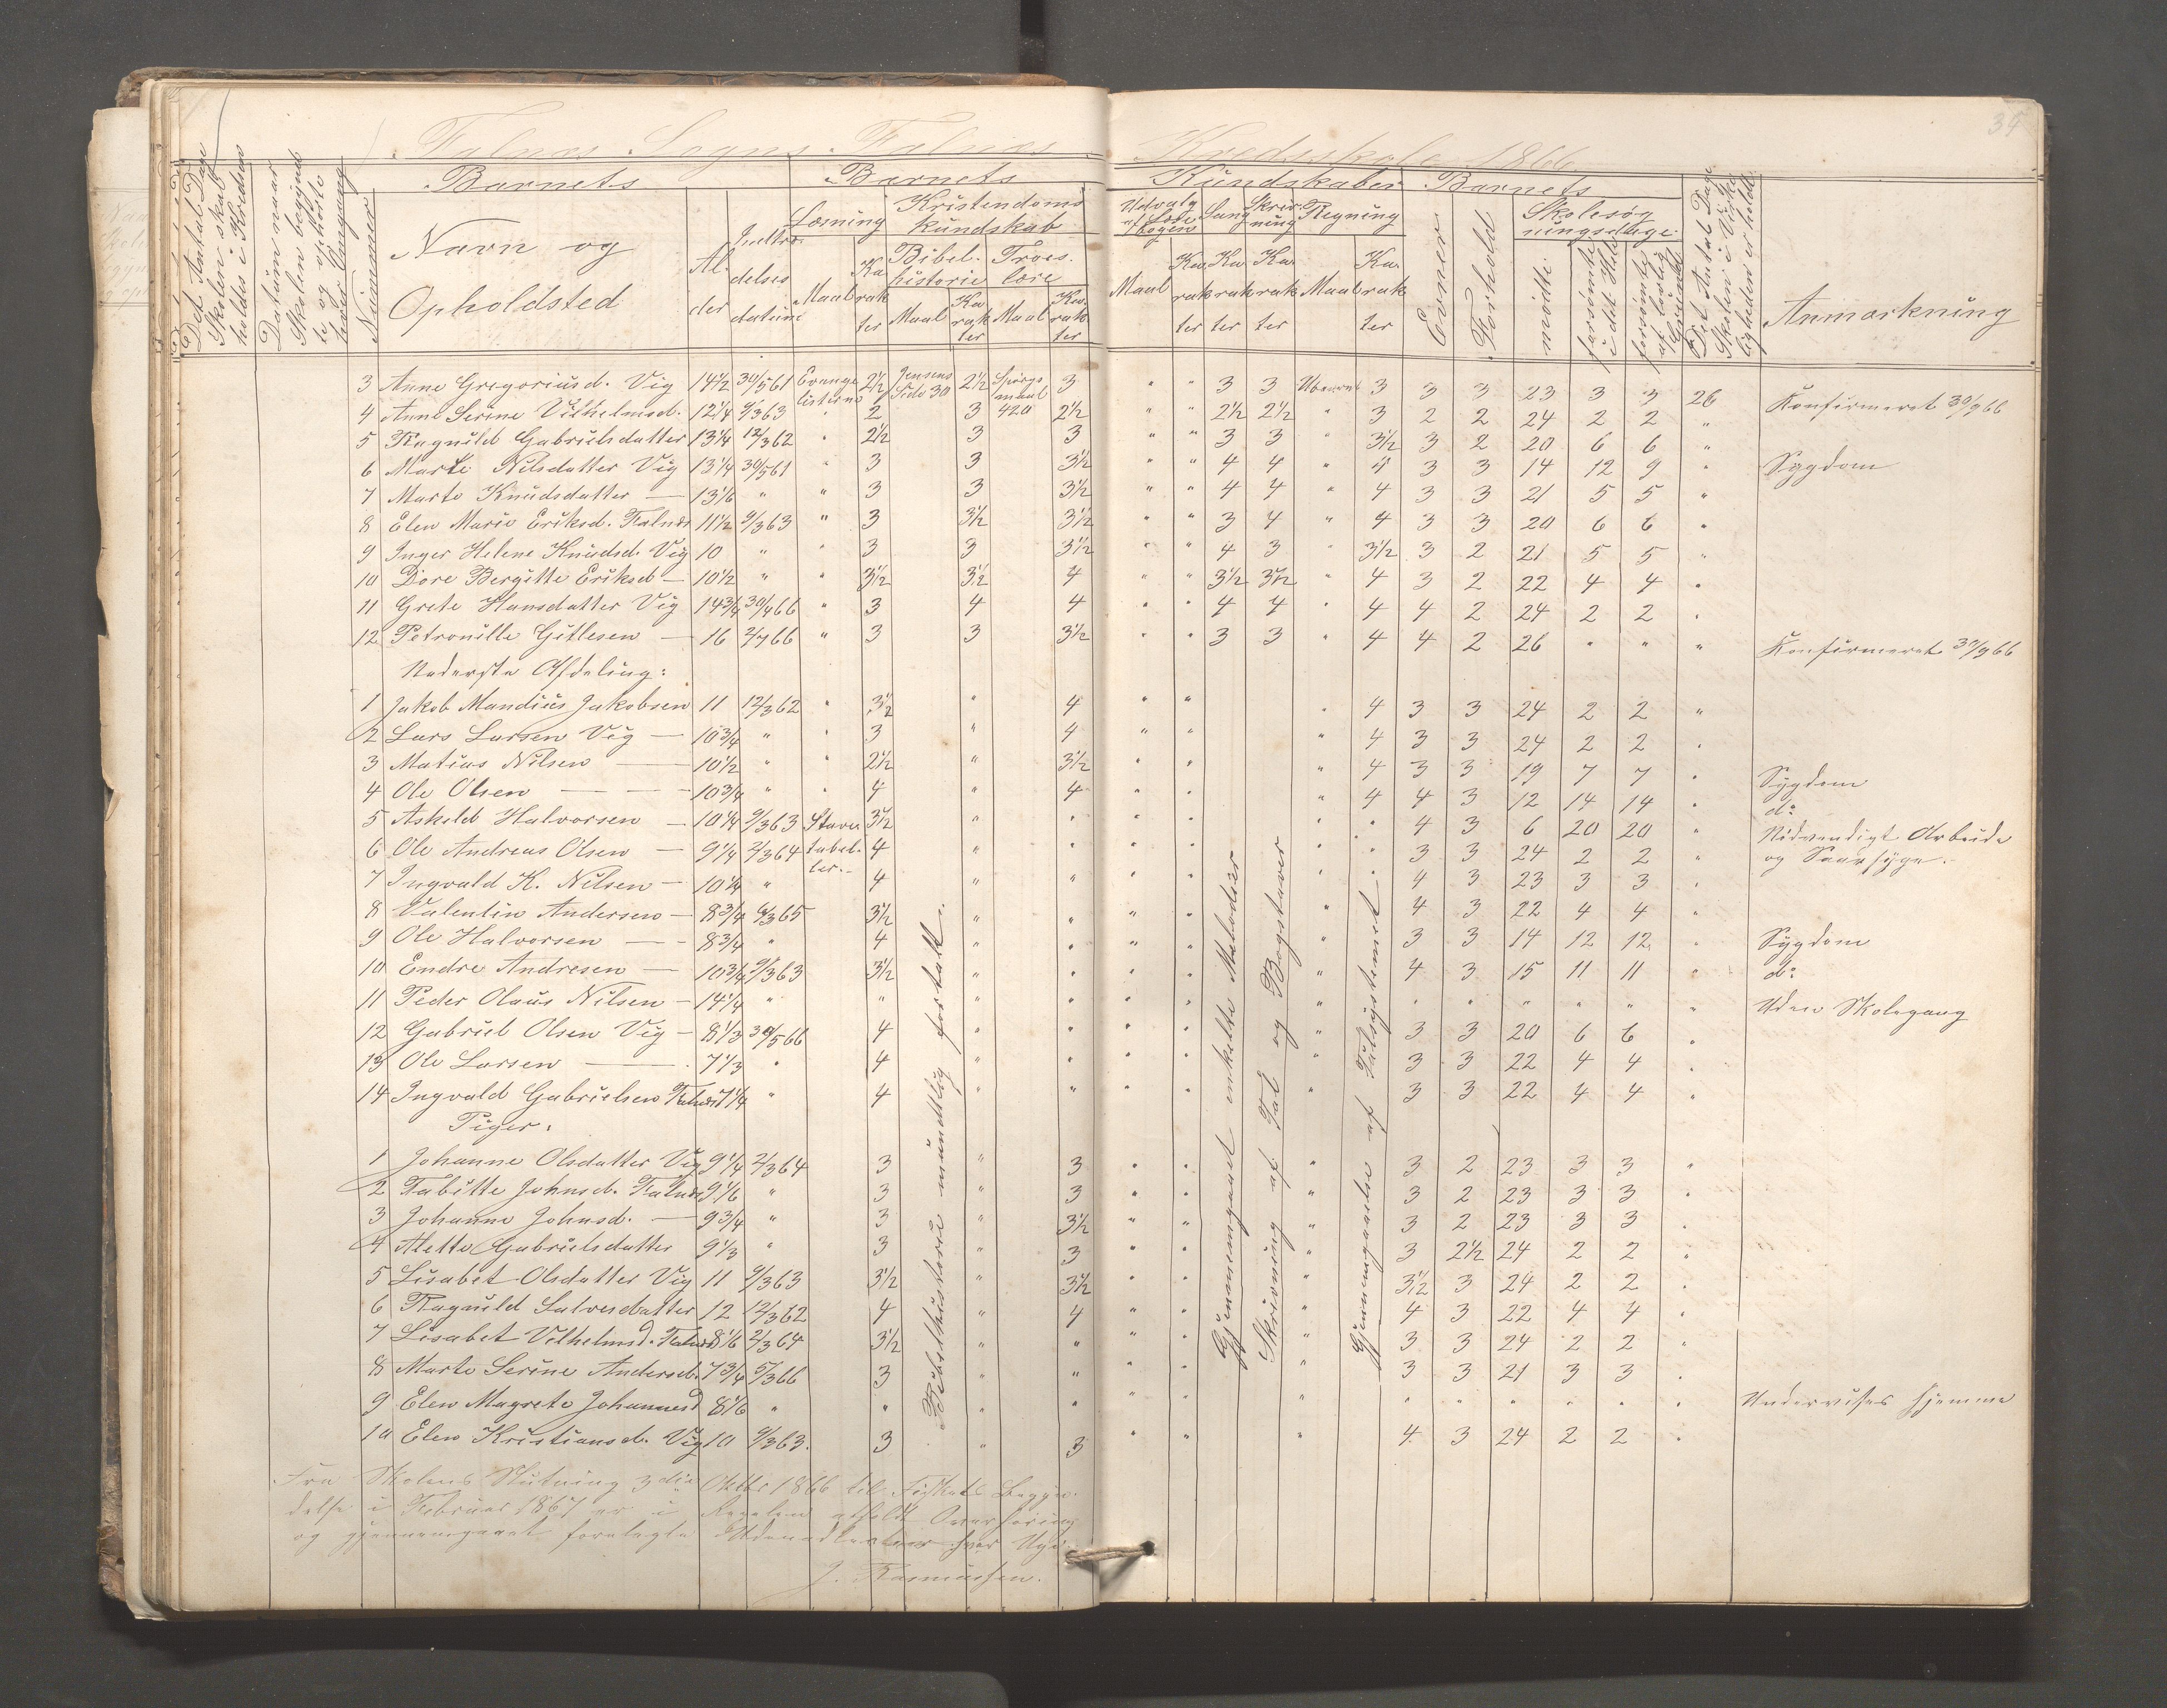 34
Falnæs Sogns Falnæs Kredsskole 1866
Det Antal Dage Skolen skal holdes i Kredsen
Datum naar Skolen begyndte og ophørte hver Omgang
Nummer
Barnets
Navn og Opholdsted
Alder
Indtrædelses datum
Barnets Kundskaber
Læsning
Maal Karakter
Kristendoms kundskab
Bibelhistorie
Maal Karakter
Troeslære
Maal Karakter
Udvalg af Læsebogen
Maal Karakter
Sang
Karakter
Skrivning
Karakter
Regning
Maal Karakter
Barnets
Evner
Forhold
Skolesøgningsdage
mödte
forsömte i det Hele
forsömte af lovlig Grund
Det Antal Dage Skolen i Virkeligheden er holdt
Anmærkning
3 Anne Gregoriusd. Vig 14½ 30/5 61 Evangelisterne 2½ Jensens Side 30 2½ Spörgsmaal 420 3 " " 3 3 Ubenævnt 3 3 3 23 3 3 26 Konfirmeret 30/9 66
4 Anne Serine Vilhelmsd. 12¼ 9/3 63 " 2 3 2½ " " 2½ 2½ " 3 2 2 24 2 2 "
5 Ragnild Gabrielsdatter 13¼ 12/3 62 " 2½ 3 3 " " 3 3 " 3½ 3 2 20 6 6 "
6 Marte Nilsdatter Vig 13¼ 30/5 61 " 3 3 3½ " " 4 4 " 4 3 3 14 12 9 " Sygdom
7 Marte Knudsdatter — 13 1/6 " " 3 3 3½ " " 4 4 " 4 3 3 21 5 5 "
8 Elen Marie Eriksd. Falnæs 11½ 9/3 63 " 3 3½ 3½ " " 3 4 " 4 3 3 20 6 6 "
9 Inger Helene Knudsd. Vig 10 " " 3 3 3½ " " 4 3 " 3½ 3 2 21 5 5 "
10 Dore Bergitte Eriksd — 10½ " " 3½ 3½ 4 " " 3½ 3½ " 4 3 2 22 4 4 "
11 Grete Hansdatter Vig 14¾ 30/4 66 " 3 4 4 " " 4 4 " 4 4 2 24 2 2 "
12 Petronille Gitlesen — 16 2/7 66 " 3 3 3½ " " 3 3 " 4 4 2 26 " " " Konfirmeret 30/9 66
Nederste Afdeling:
1 Jakob Mandius Jakobsen 11 12/3 62 " 3½ " 4 " " " 4 3 3 24 2 2 "
2 Lars Larsen Vig — 10¾ " " 3 " 4 " " " 4 3 3 24 2 2 "
3 Matias Nilsen — 10½ " " 2½ " 3½ " " " 4 3 3 19 7 7 " Sygdom
4 Ole Olsen — 10¾ " " 4 " 4 " " " 4 4 3 12 14 14 " do
5 Askeld Halvorsen — 10¼ 9/3 63 Stavetabeller 3½ " " " " " " 4 3 6 20 20 " Nödvendigt Arbeide
6 Ole Andreas Olsen — 9¼ 2/3 64 4 " " " " " " 3 3 24 2 2 " og Saarsyge.
7 Ingvald K. Nilsen — 10¼ " 4 " " " " " " 4 3 23 3 3 "
8 Valentin Andersen — 8¾ 6/3 65 3½ " " " " " 4 3 22 4 4 "
9 Ole Halvorsen — 8¾ " 4 " " " " " 3 3 14 12 12 " Sygdom
10 Endre Andresen — 10¾ 9/3 63 3½ " " " " " 4 3 15 11 11 " do
11 Peder Olaus Nilsen — 14¼ " " " " " " " " " " " " " Uden Skolegang
12 Gabriel Olsen Vig — 8⅓ 30/5 66 4 " " " " " 3 3 20 6 6 "
13 Ole Larsen — 7⅓ " 4 " " " " " 3 3 22 4 4 "
14 Ingvald Gabrielsen Falnæs 7¼ " 4 " " " " " 3 3 22 4 4 "
Piger.
1 Johanne Olsdatter Vig 9¼ 2/3 64 3 " 3 " " " 3 2 23 3 3 "
2 Tabitte Johnsd. Falnæs 9 1/6 " 3 " 3 " " " 3 2 23 3 3 "
3 Johanne Johnsd. — 9¾ " 3 " 3½ " " " 3 2 23 3 3 "
4 Alette Gabrielsdatter 9⅓ " 3 " 3 " " " 3 2½ 24 2 2 "
5 Lisabet Olsdatter Vig 11 9/3 63 3½ " 3½ " " " 3½ 3 24 2 2 "
6 Ragnild Salvesdatter 12 12/3 62 4 " 4 " " " 4 3 22 4 4 "
7 Lisabet Vilhelmsd. Falnæs 8 1/6 2/3 64 3½ " " " " " 3 3 24 2 2 "
8 Marte Serine Andersd. 7¾ 5/3 66 3 " " " " " 3 3 21 3 3 "
9 Elen Magrete Johannesd 8 1/6 " " " " " " " " " " " " " Undervises hjemme
10 Elen Kristiansd. Vig 10 9/3 63 3 " 3 " " " 4 3 24 2 2 "
Bibelhistorie mundtlig fortalt.
Gjennemgaaet enkelte Melodier
Skrivning af Tal og Bogstaver
Gjennemgaaelse af Talsystemet
Fra Skolens Slutning 3die Oktbr 1866 til Fiskets Begyndelse i Februar 1867 er i Regelen afholdt Overhöring
og gjennemgaaet forelagte Udenadlexier hver Uge.
J. Rasmussen.